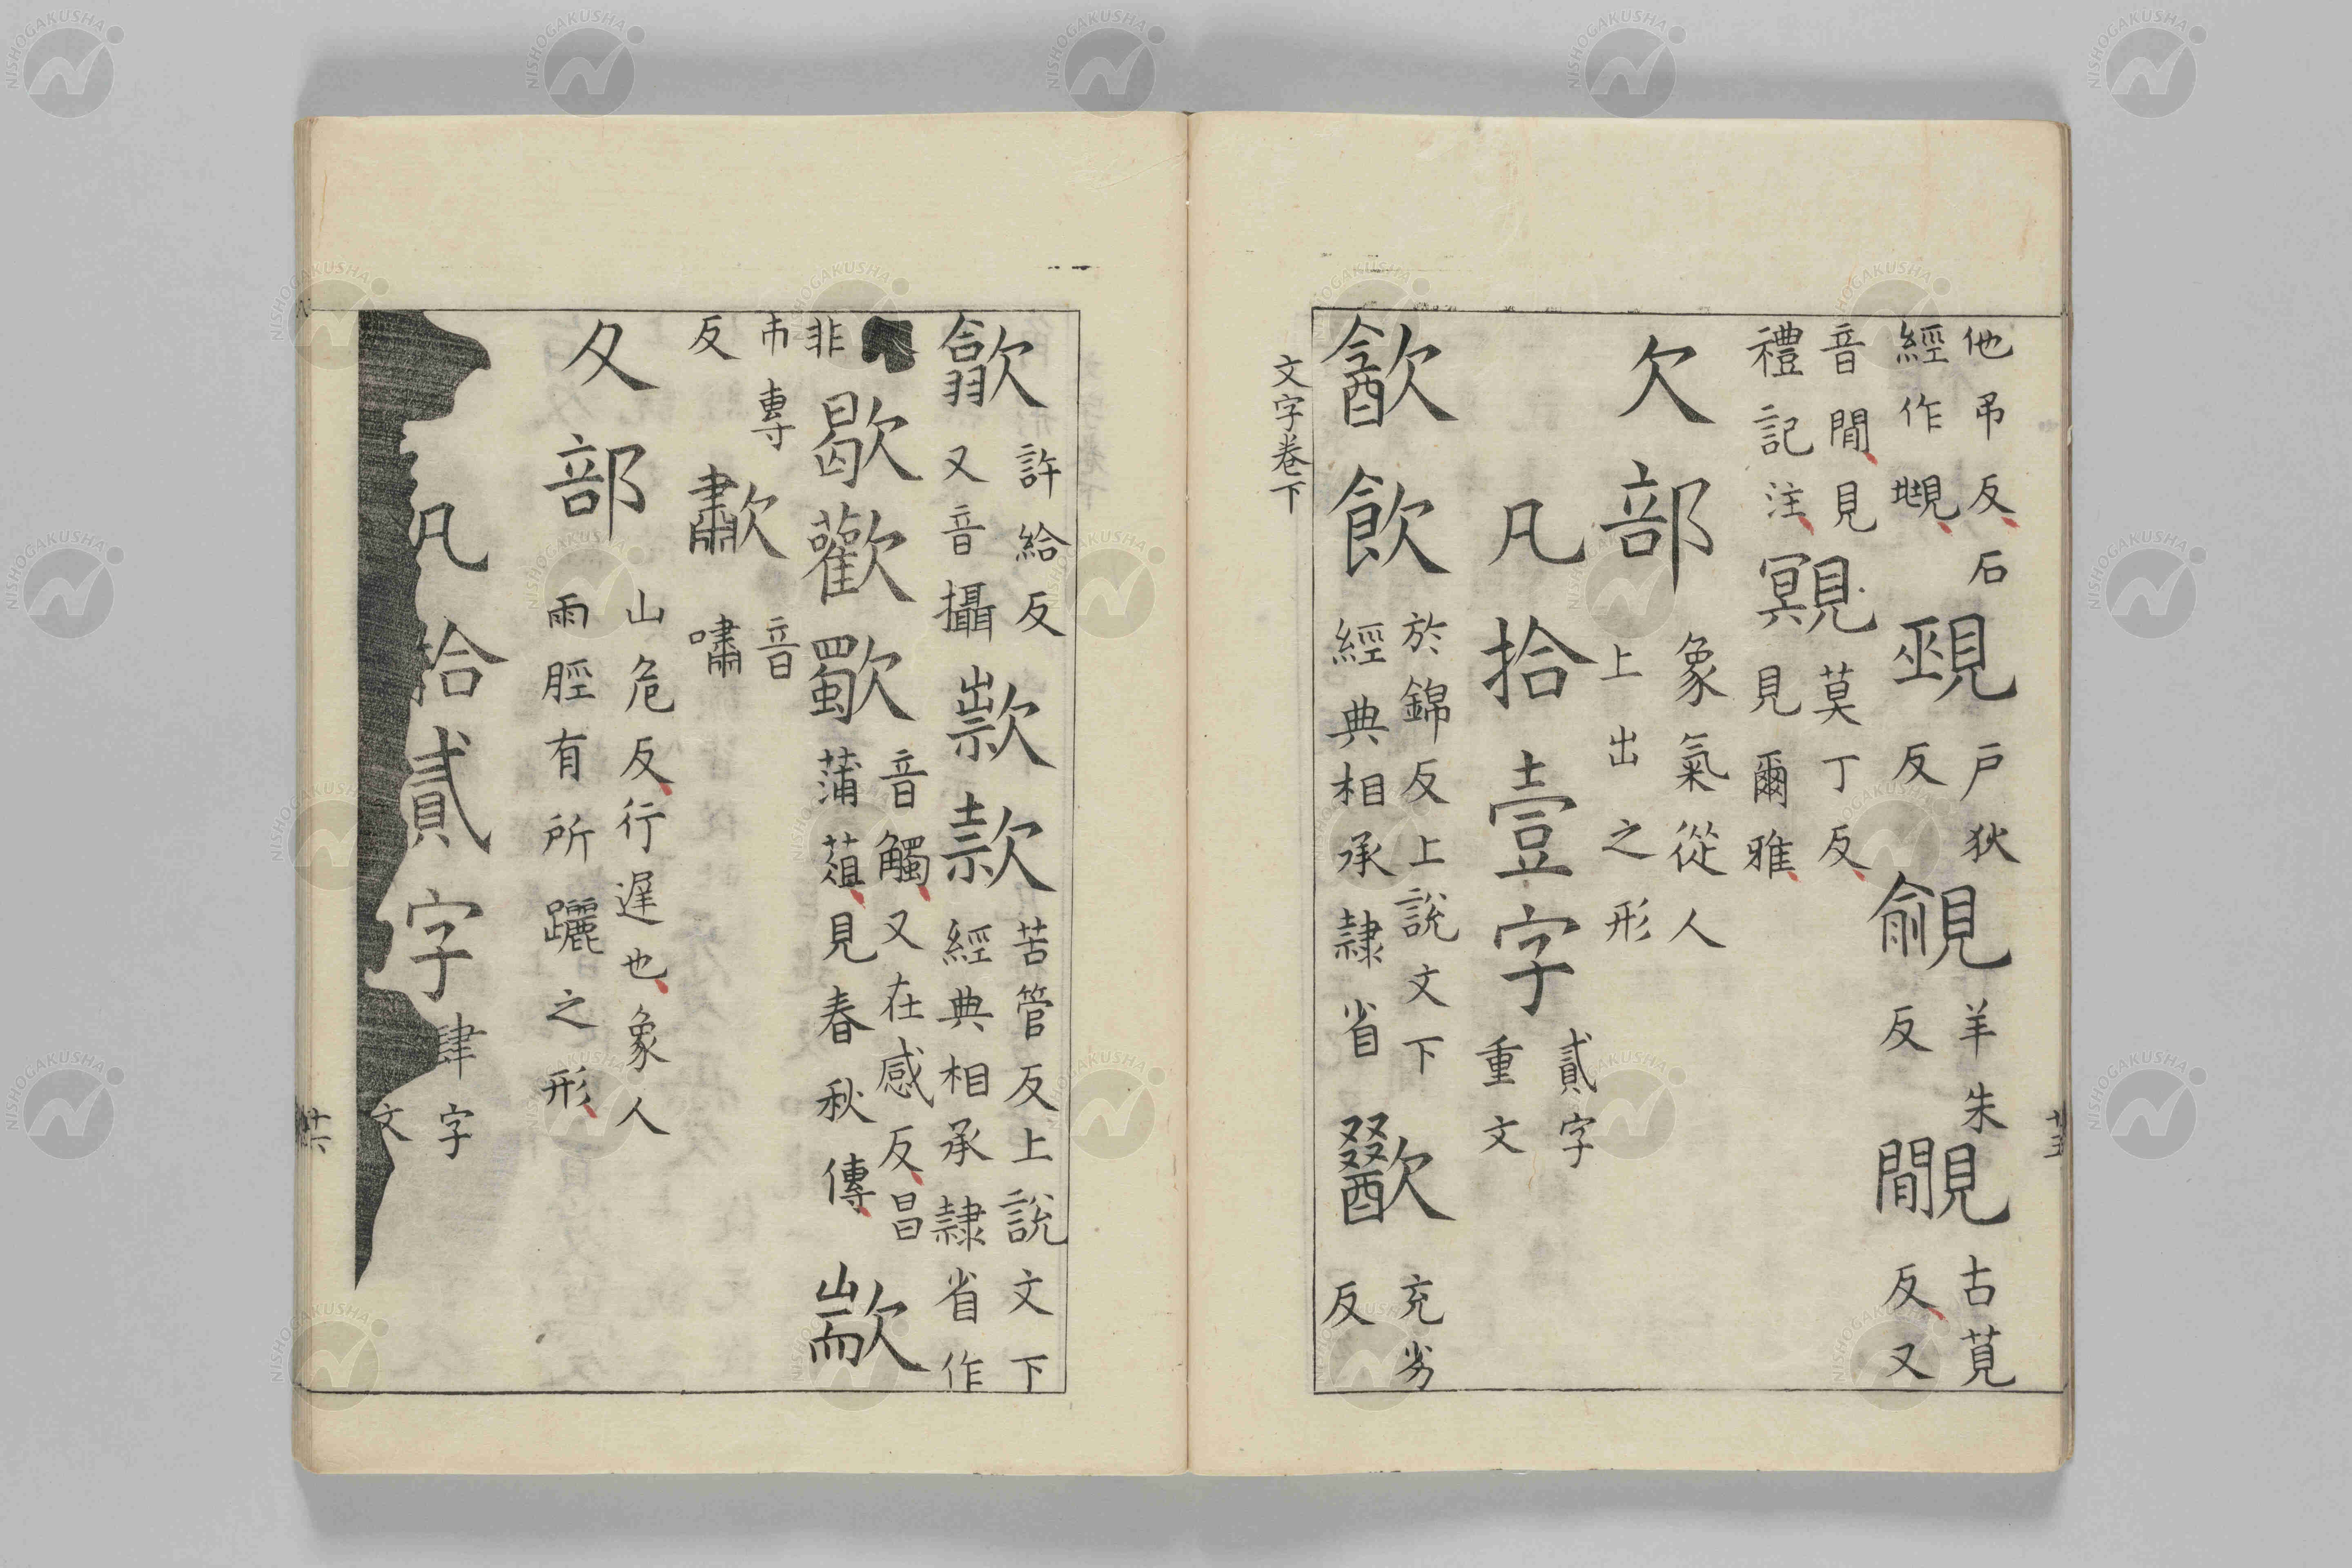 他吊反石
經作
覡
戶狄
反
覦
羊朱
反
覸
古莧
反又
音閒見
禮記注
覭
莫丁反
見爾雅
欠部
象氣從人
上出之形
凡拾壹字
貳字
重文
㱃飲
於錦反上說文下
經典相承隸省
歠
充劣
反
文字卷下
廿五
歙
許給反
又音攝
欵款
苦管反上說文下
經典相承隸省作
非
歇歡歜
音觸又在感反昌
蒲葅見春秋傳
歂
市專
反
歗
音
嘯
夊部
山危反行遲也象人
雨脛有所躧之形
凡拾貳字
肆字
文
廿六
NISHOGAKUSHA